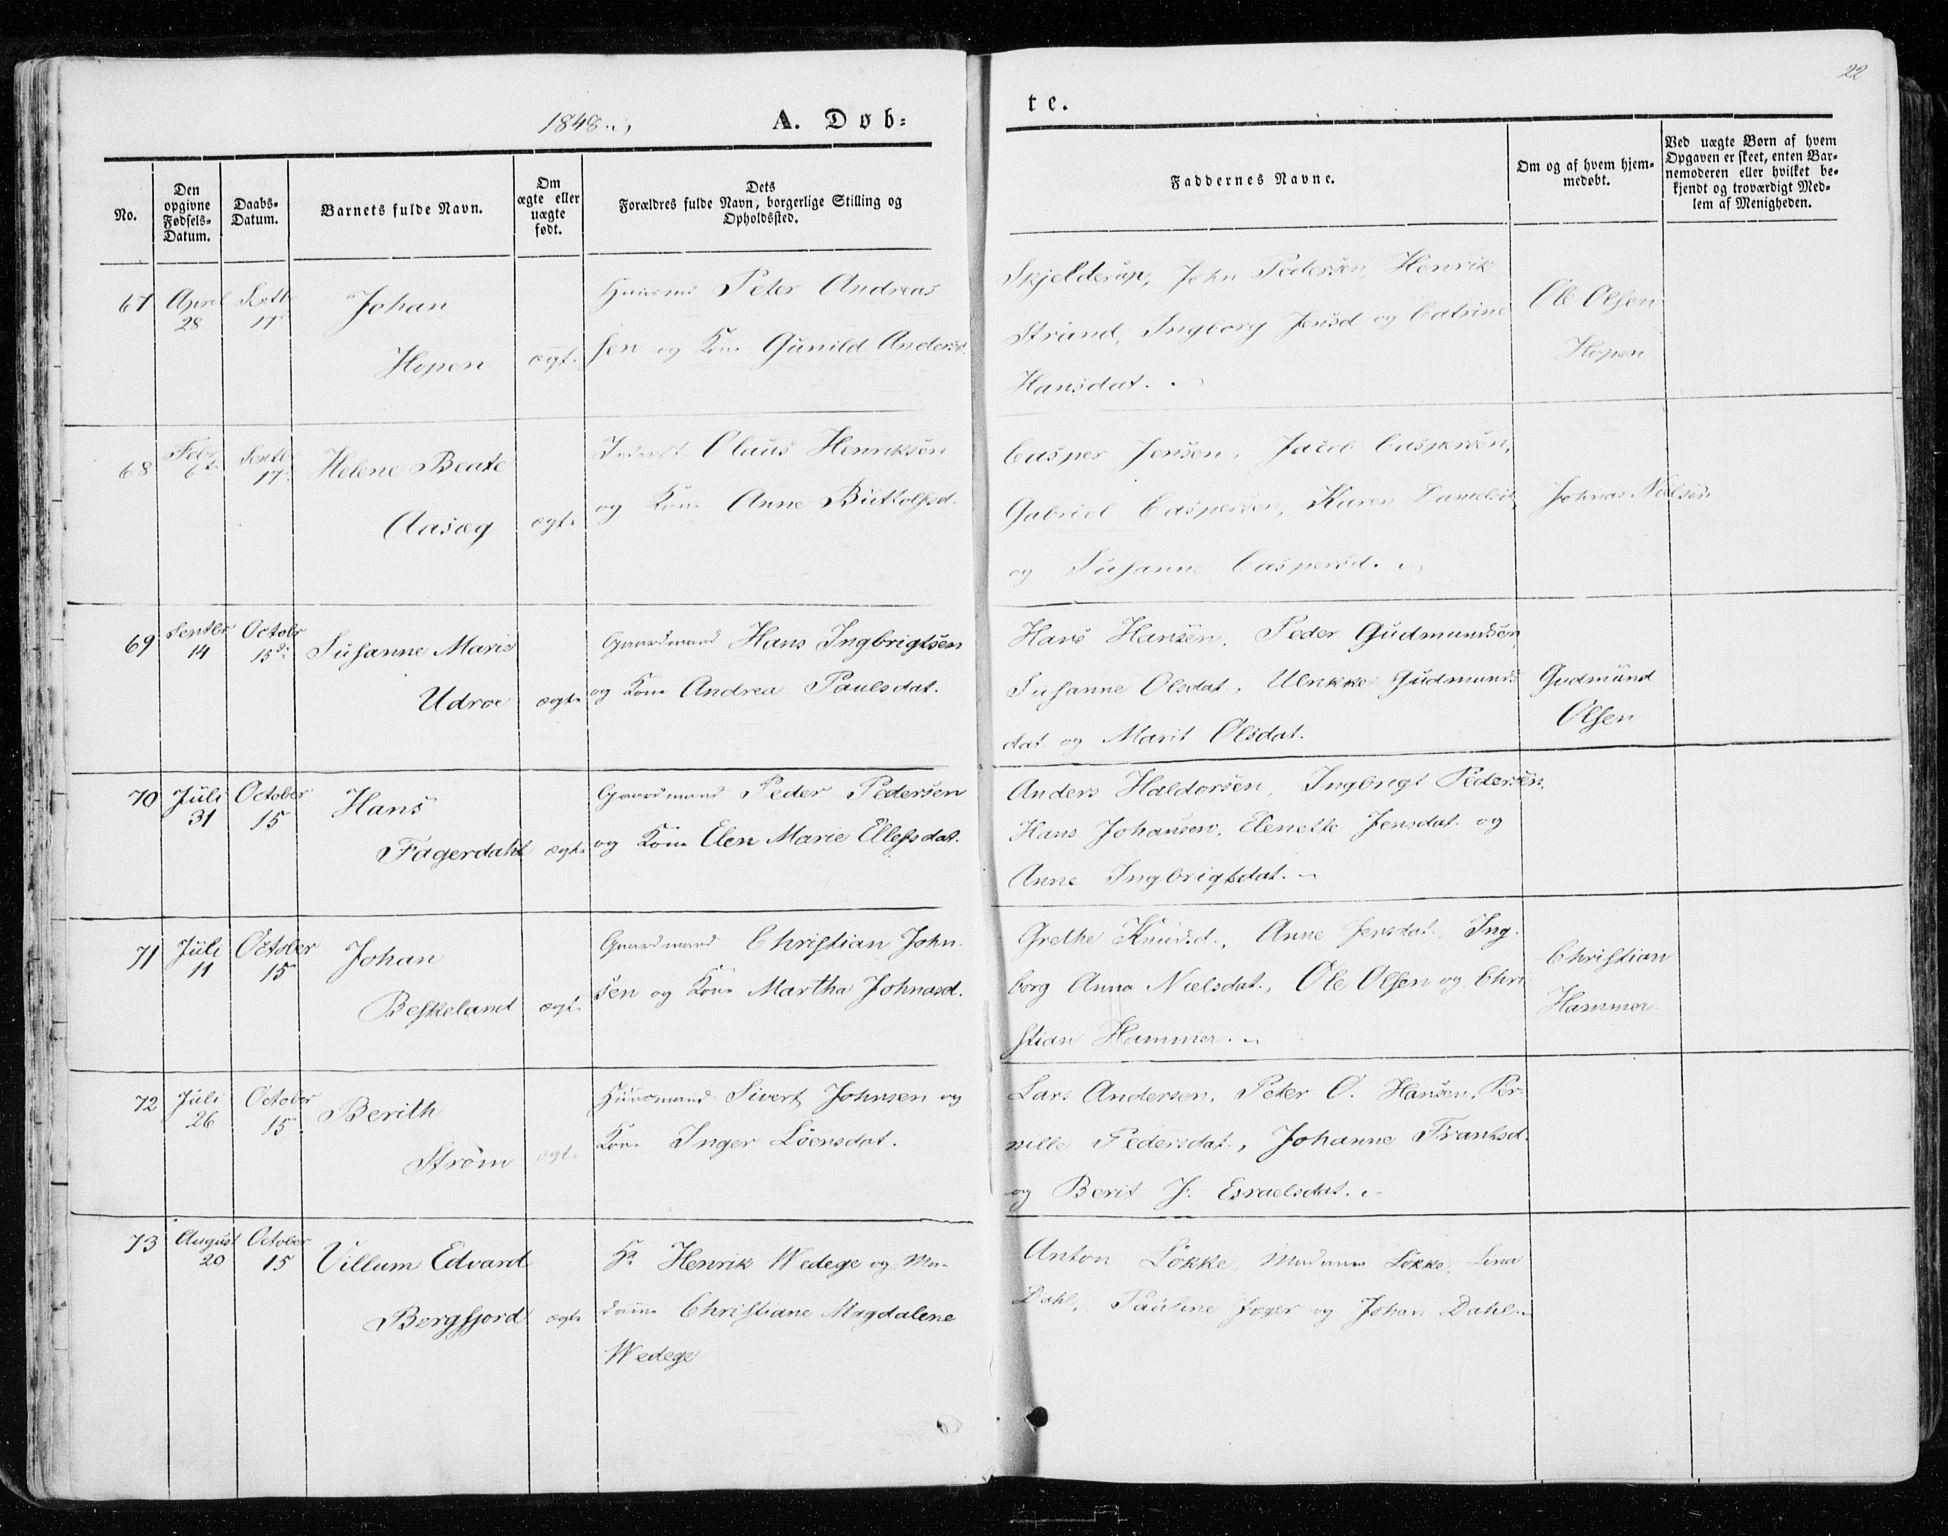 22
1848.
A. Døb=
te.
No.
Den
opgivne
Fødsels-
Datum.
Daabs-
Datum.
Barnets fulde Navn.
Om
ægte eller
uægte
født.
Dets
Forældres fulde Navn, borgerlige Stilling og
Opholdssted.
Faddernes Navne.
Om og af hvem hjem-
medøbt.
Ved uægte Børn af hvem
Opgaven er skeet, enten Bar-
nemoderen eller hvilket be-
kjendt og troværdigt Med-
lem af Menigheden.
67
April
28
Septb
17
Johan
Hopen
ægt.
Huusmd Peter Andreas
sen og Kone Gunild Andersd.
Skjelderup, John Pedersen, Henrik
Strand, Ingborg Jensd og Catrine
Hansdat.
Ole Olsen
Hopen
68
Febr
6
Septb
17
Helene Beate
Aasæg
ægt.
Olaus Henriksen
og Kone Anne Buttolfsd.
Casper Jensen, Jacob Caspersen,
Gabriel Caspersen, Karen
og Susanne Caspersd.
Johnas Nielsen
69
Septbr
14
Octobr
15de
Susanne Marie
Udroe
ægt.
Gaardmand Hans Ingbrigtsen
og Kone Andrea Paulsdat.
Hans Hansen, Peder Gudmundsen,
Susanne Olsdat, Ulrikke Gudmunds
dat og Marit Olsdat.
Gudmund
Olsen
70
Juli
31
October
15
Hans
Fagerdahl
ægt.
Gaardmand Peder Pedersen
og Kone Elen Marie Ellefsdat.
Anders Haldorsen, Ingbrigt Pedersen,
Hans Johansen, Elenette Jensdat. og
Anne Ingbrigtsdat.
71
Juli
11
October
15
Johan
Beskeland
ægt.
Gaardmand Christian John-
sen og Kone Martha Johnasd.
Grethe Knudsd., Anne Jensdat., Ing-
borg Anna Nielsdat., Ole Olsen og Chri
stian Hammer.
Christian
Hammer
72
Juli
26
October
15
Berith
Strøm
ægt.
Huusmand Sivert Johnsen og
Kone Inger Loensdat.
Lars Andersen, Peter O. Hansen, Per-
nille Pedersdat., Johanne Frantsd.
og Berit J. Esraelsdat.
73
August
20
October
15
Villum Edvard
Bergfjord
ægt.
Hr Henrik Wedege og Ma-
dame Christiane Magdalene
Wedege
Anton Løkke, Madame Løkke, Lina
Dahl, Pauline Jæger og Johan Dahl.